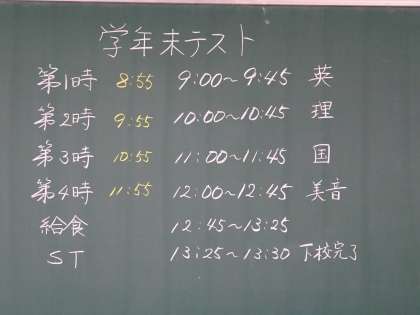 学年末テスト
第1時 8:55 9:00～9:45 英
第2時 9:55 10:00～10:45 理
第3時 10:55 11:00～11:45 国
第4時 11:55 12:00～12:45 美音
給食 12:45～13:25
ST 13:25～13:30 下校完了